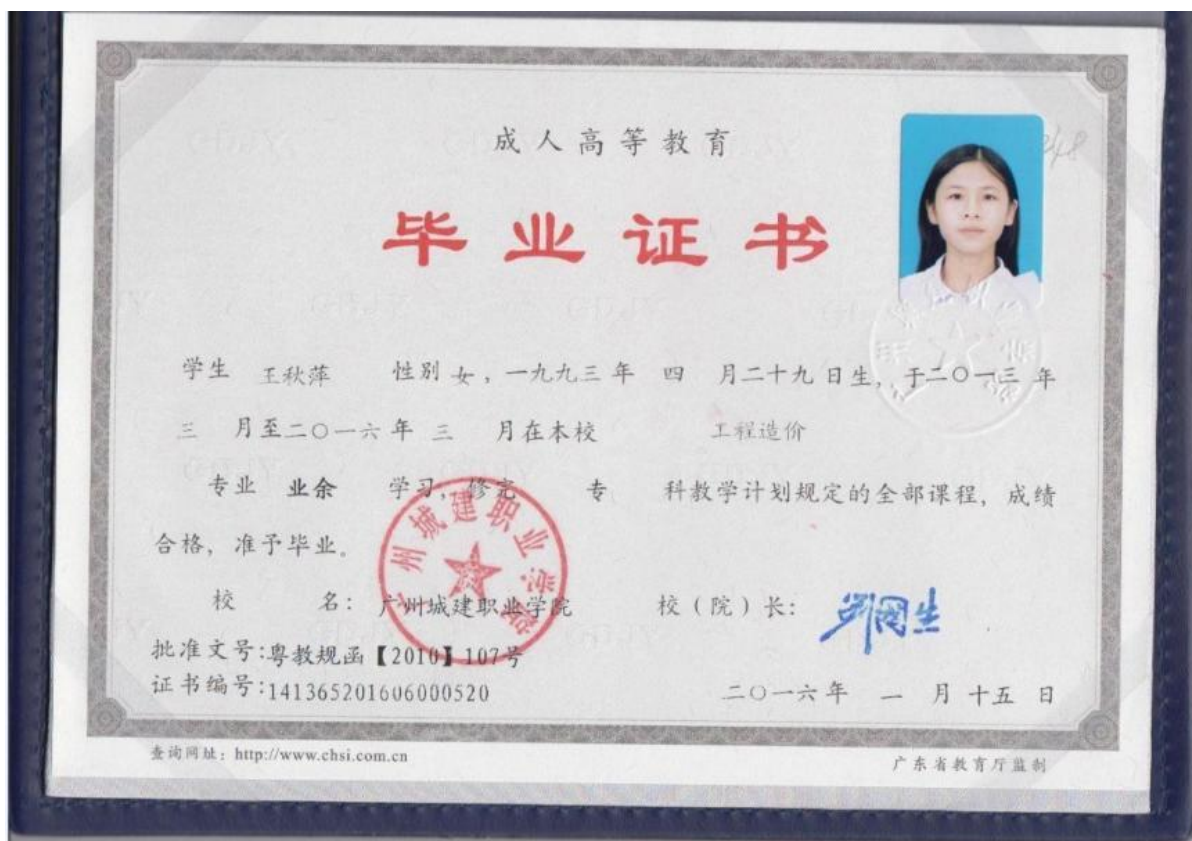 成人高等教育
毕业证书
学生 王秋萍 性别 女，一九九三年 四 月二十九日生，于二〇一三年
三 月至二〇一六年 三 月在本校 工程造价
专业 业余 学习，修完 专 科教学计划规定的全部课程，成绩
合格，准予毕业。
校 名：广州城建职业学院 校（院）长：
批准文号:粤教规函【2010】107号
证书编号:141365201606000520 二〇一六年 一 月 十五 日
查询网址：http://www.chsi.com.cn 广东省教育厅监制
广州城建职业学院